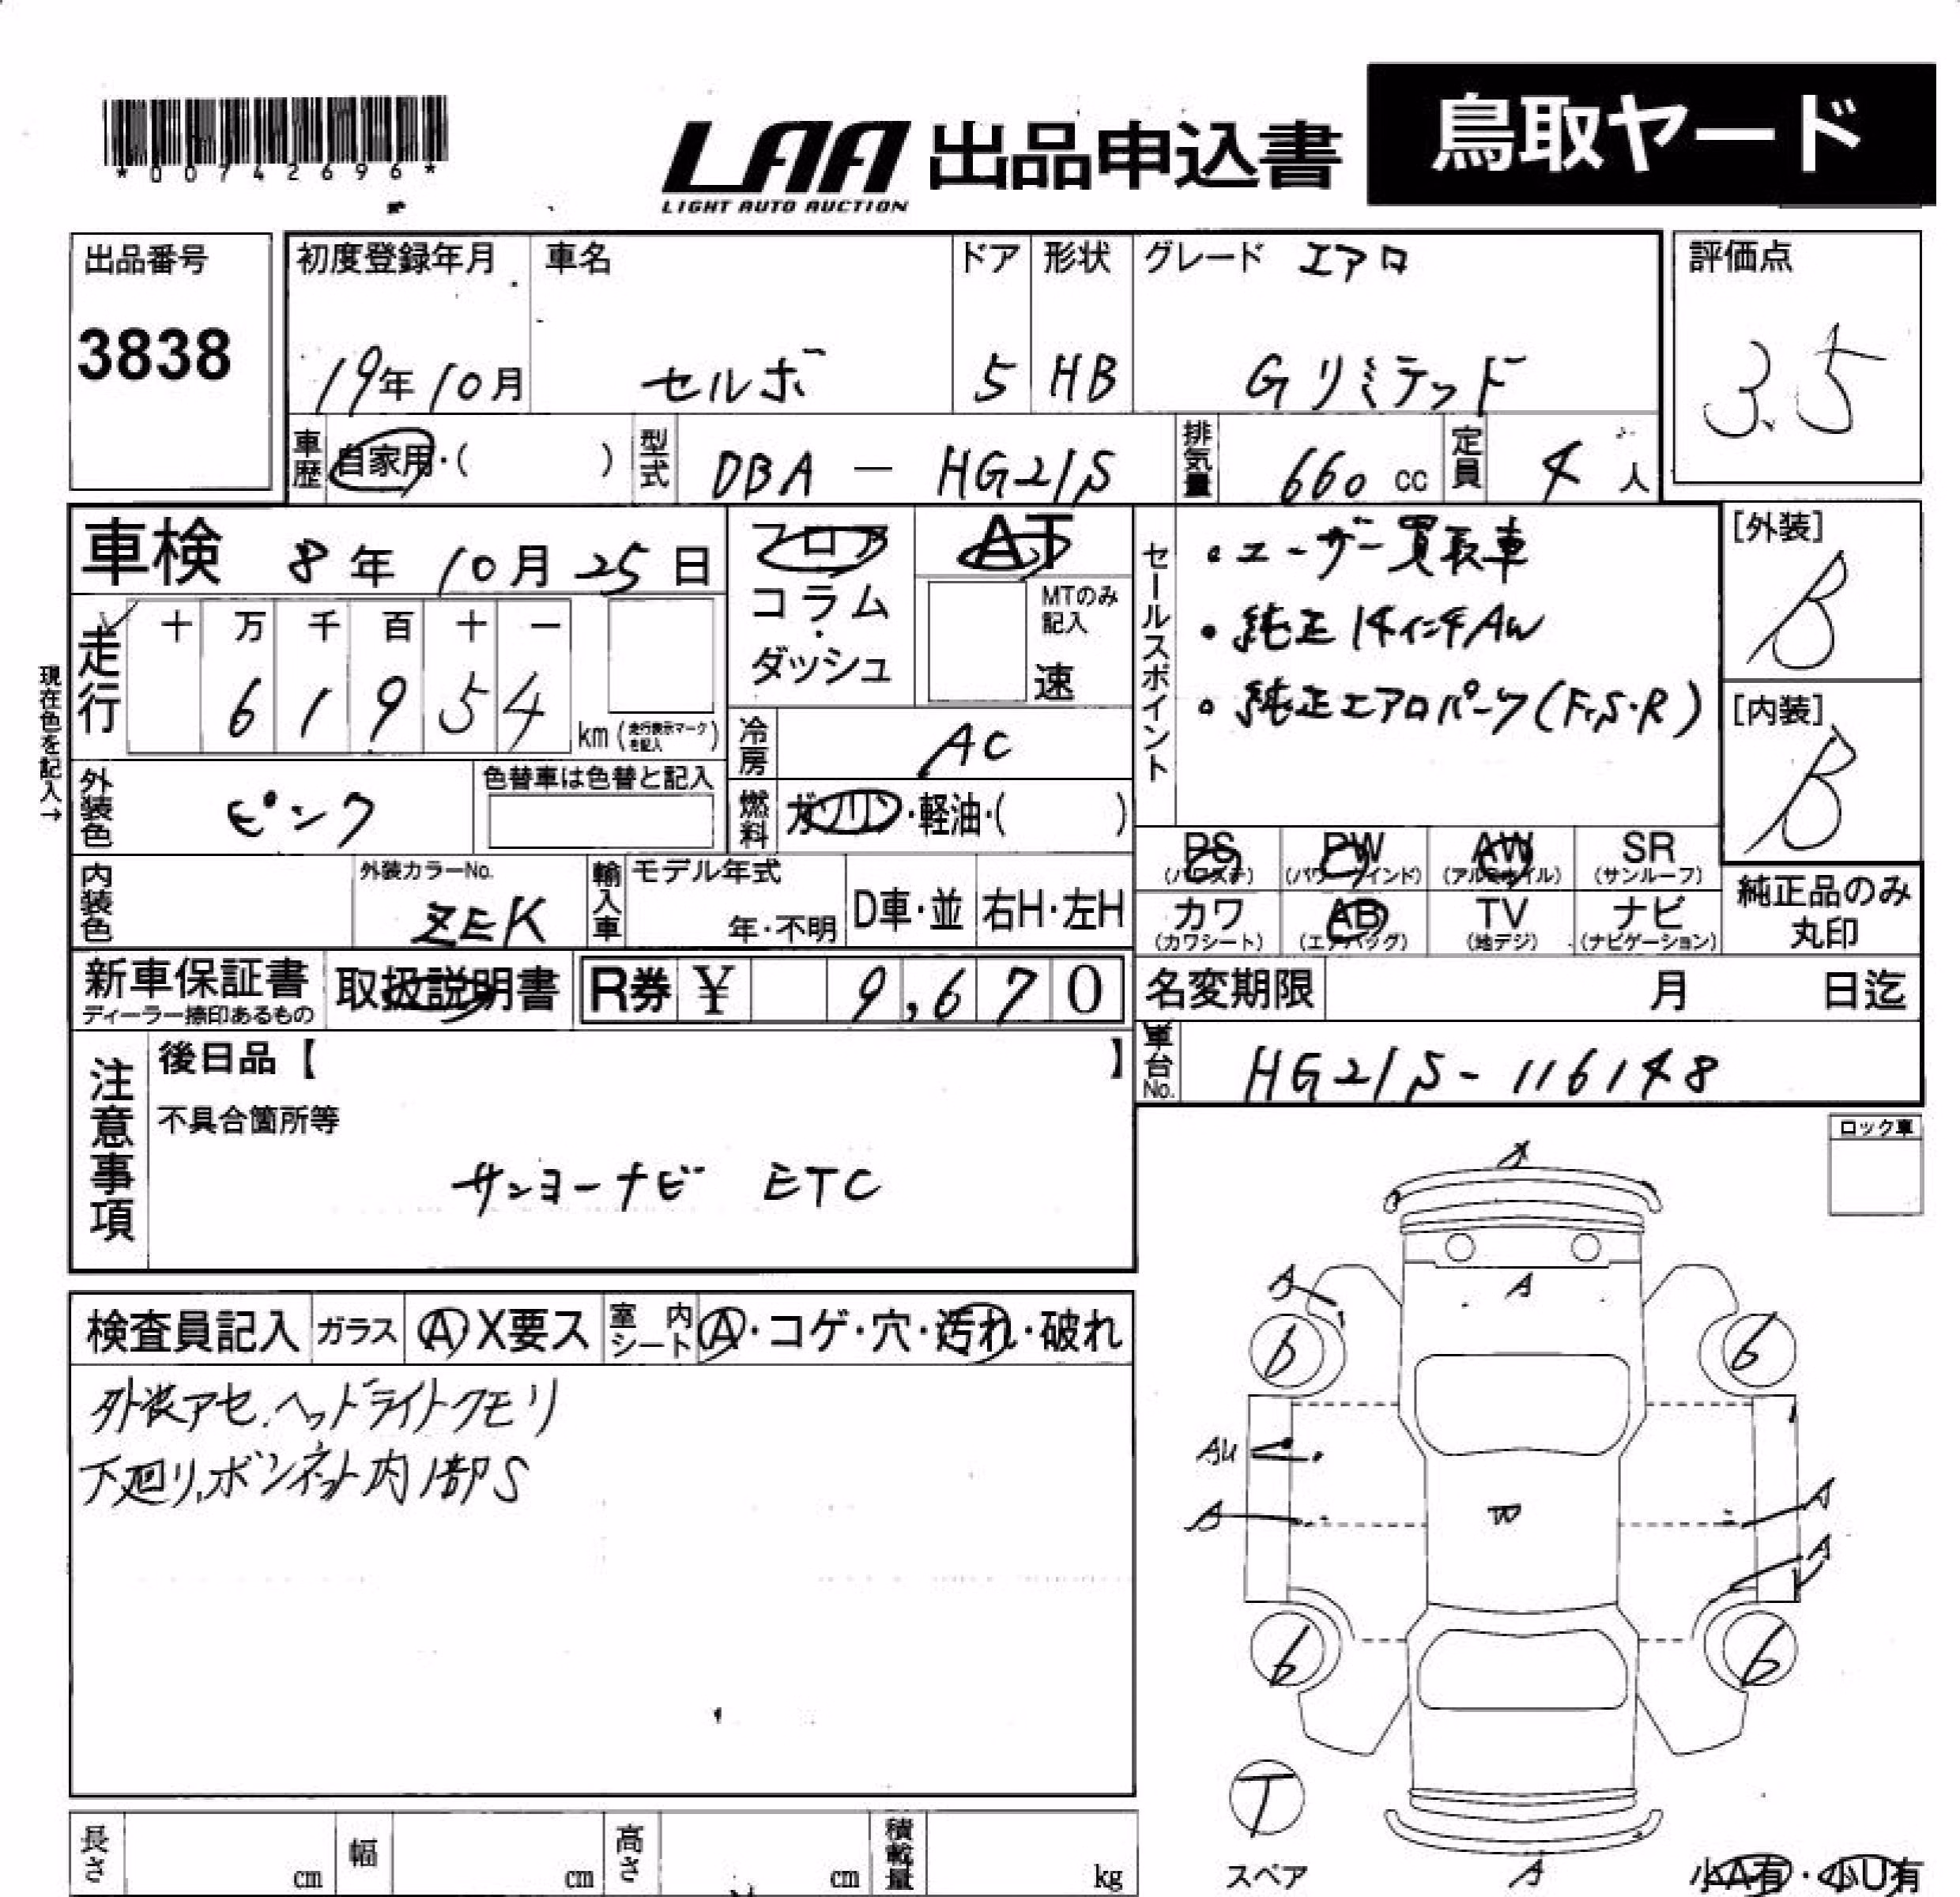 *00742696*
LAA 出品申込書 鳥取ヤード
LIGHT AUTO AUCTION
出品番号 初度登録年月 車名 ドア 形状 グレード エアロ 評価点
3838 19年10月 セルボ 5 HB Gリミテッド 3.5
車歴 自家用・( ) 型式 DBA - HG21S 排気量 660 cc 定員 4 人
車検 8年 10月 25日 フロア AT セールスポイント ・ユーザー買取車 [外装]
コラム・ダッシュ MTのみ記入 速 ・純正14インチAW B
現在色を記入→ 走行 十 万 千 百 十 一 ・純正エアロパーツ(F.S.R) [内装]
6 1 9 5 4 km(走行表示マークを記入) 冷房 AC B
外装色 ピンク 色替車は色替と記入 燃料 ガソリン・軽油・( )
PS (パワステ) PW (パワーウインド) AW (アルミホイル) SR (サンルーフ)
内装色 外装カラーNo. ZEK 輸入車 モデル年式 年・不明 D車・並 右H・左H
カワ (カワシート) AB (エアバッグ) TV (地デジ) ナビ (ナビゲーション) 純正品のみ丸印
新車保証書 取扱説明書 R券 ¥ 9,670 名変期限 月 日迄
ディーラー捺印あるもの
注意事項 後日品【 】 車台No. HG21S-116148
不具合箇所等
サンヨーナビ ETC
ロック車
検査員記入 ガラス A X要ス 室内シート A・コゲ・穴・汚れ・破れ
外装アセ.ヘッドライトクモリ
下廻り,ボンネット内1部S
A
A A
6 6
AU
A W A
A
6 6
T
スペア
A
小A有・小U有
長さ cm 幅 cm 高さ cm 積載量 kg